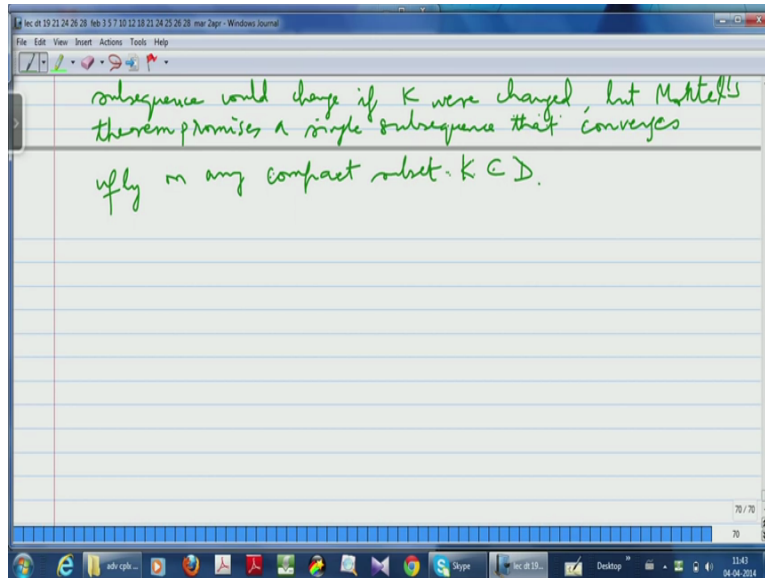 lec dt 19 21 24 26 28 feb 3 5 7 10 12 18 21 24 25 26 28 mar 2apr - Windows Journal
File Edit View Insert Actions Tools Help
subsequence would change if K were changed, but Montel's
theorem promises a single subsequence that converges
ufly on any compact subset K ⊂ D.
70 / 70
70
adv cplx ... Skype lec dt 19... Desktop 11:43
04-04-2014